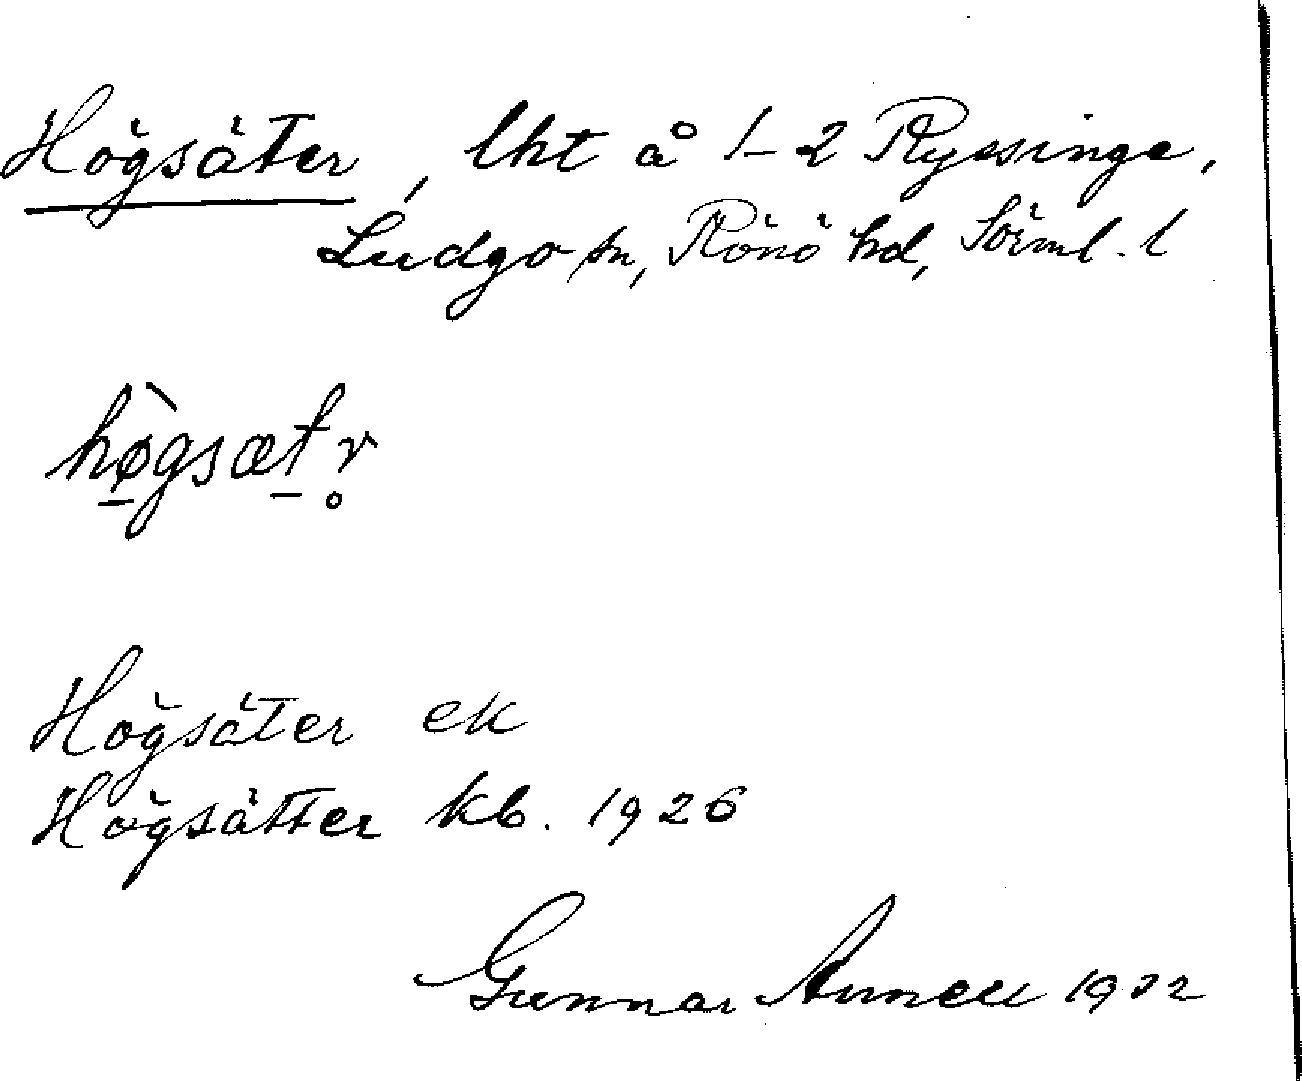 Högsäter, lht å 1-2 Ryssinge,
Ludgo sn, Rönö hd, Sörml. l
hø̠̀gsæt̠r̥
Högsäter ek
Högsätter kb. 1926
Gunnar 1932